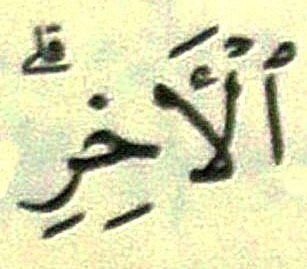 ٱلْأَخِرِۗ